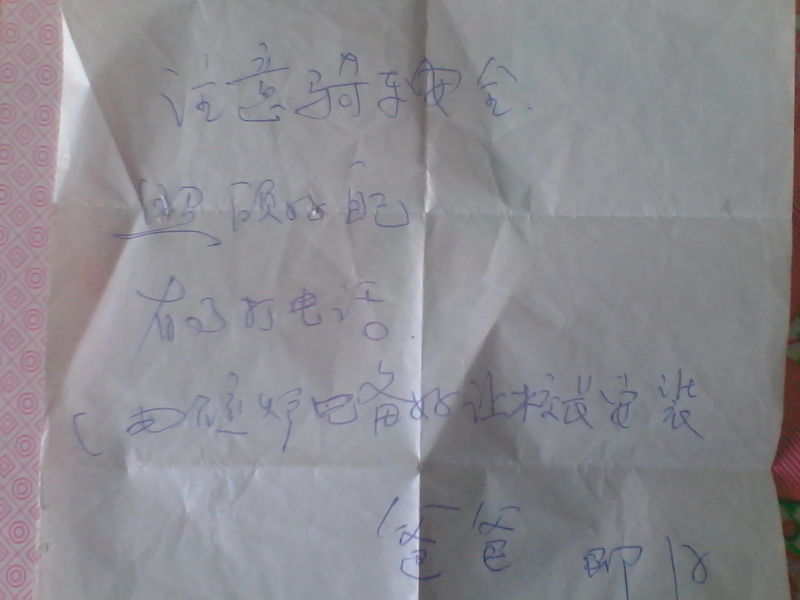 注意骑车安全.
照顾好自己
有事打电话.
备好让校长安装
爸爸 即